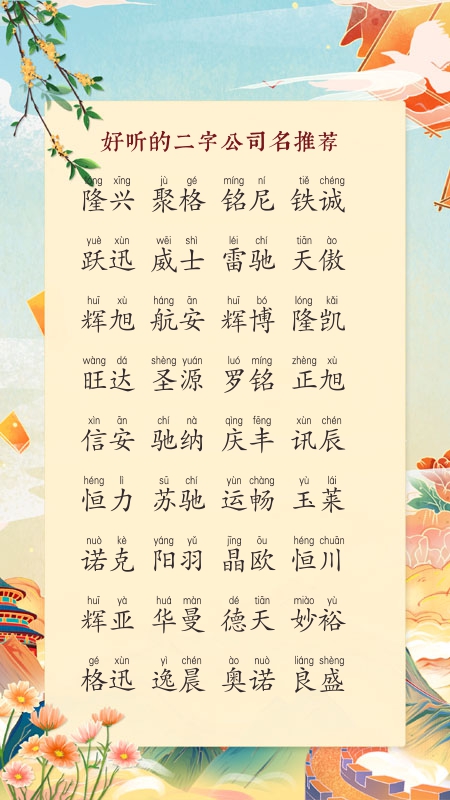 好听的二字公司名推荐
lóng xīng jù gé míng ní tiě chéng
隆兴 聚格 铭尼 铁诚
yuè xùn wēi shì léi chí tiān ào
跃迅 威士 雷驰 天傲
huī xù háng ān huī bó lóng kǎi
辉旭 航安 辉博 隆凯
wàng dá shèng yuán luó míng zhèng xù
旺达 圣源 罗铭 正旭
xìn ān chí nà qìng fēng xùn chén
信安 驰纳 庆丰 讯辰
héng lì sū chí yùn chàng yù lái
恒力 苏驰 运畅 玉莱
nuò kè yáng yǔ jīng ōu héng chuān
诺克 阳羽 晶欧 恒川
huī yà huá màn dé tiān miào yù
辉亚 华曼 德天 妙裕
gé xùn yì chén ào nuò liáng shèng
格迅 逸晨 奥诺 良盛